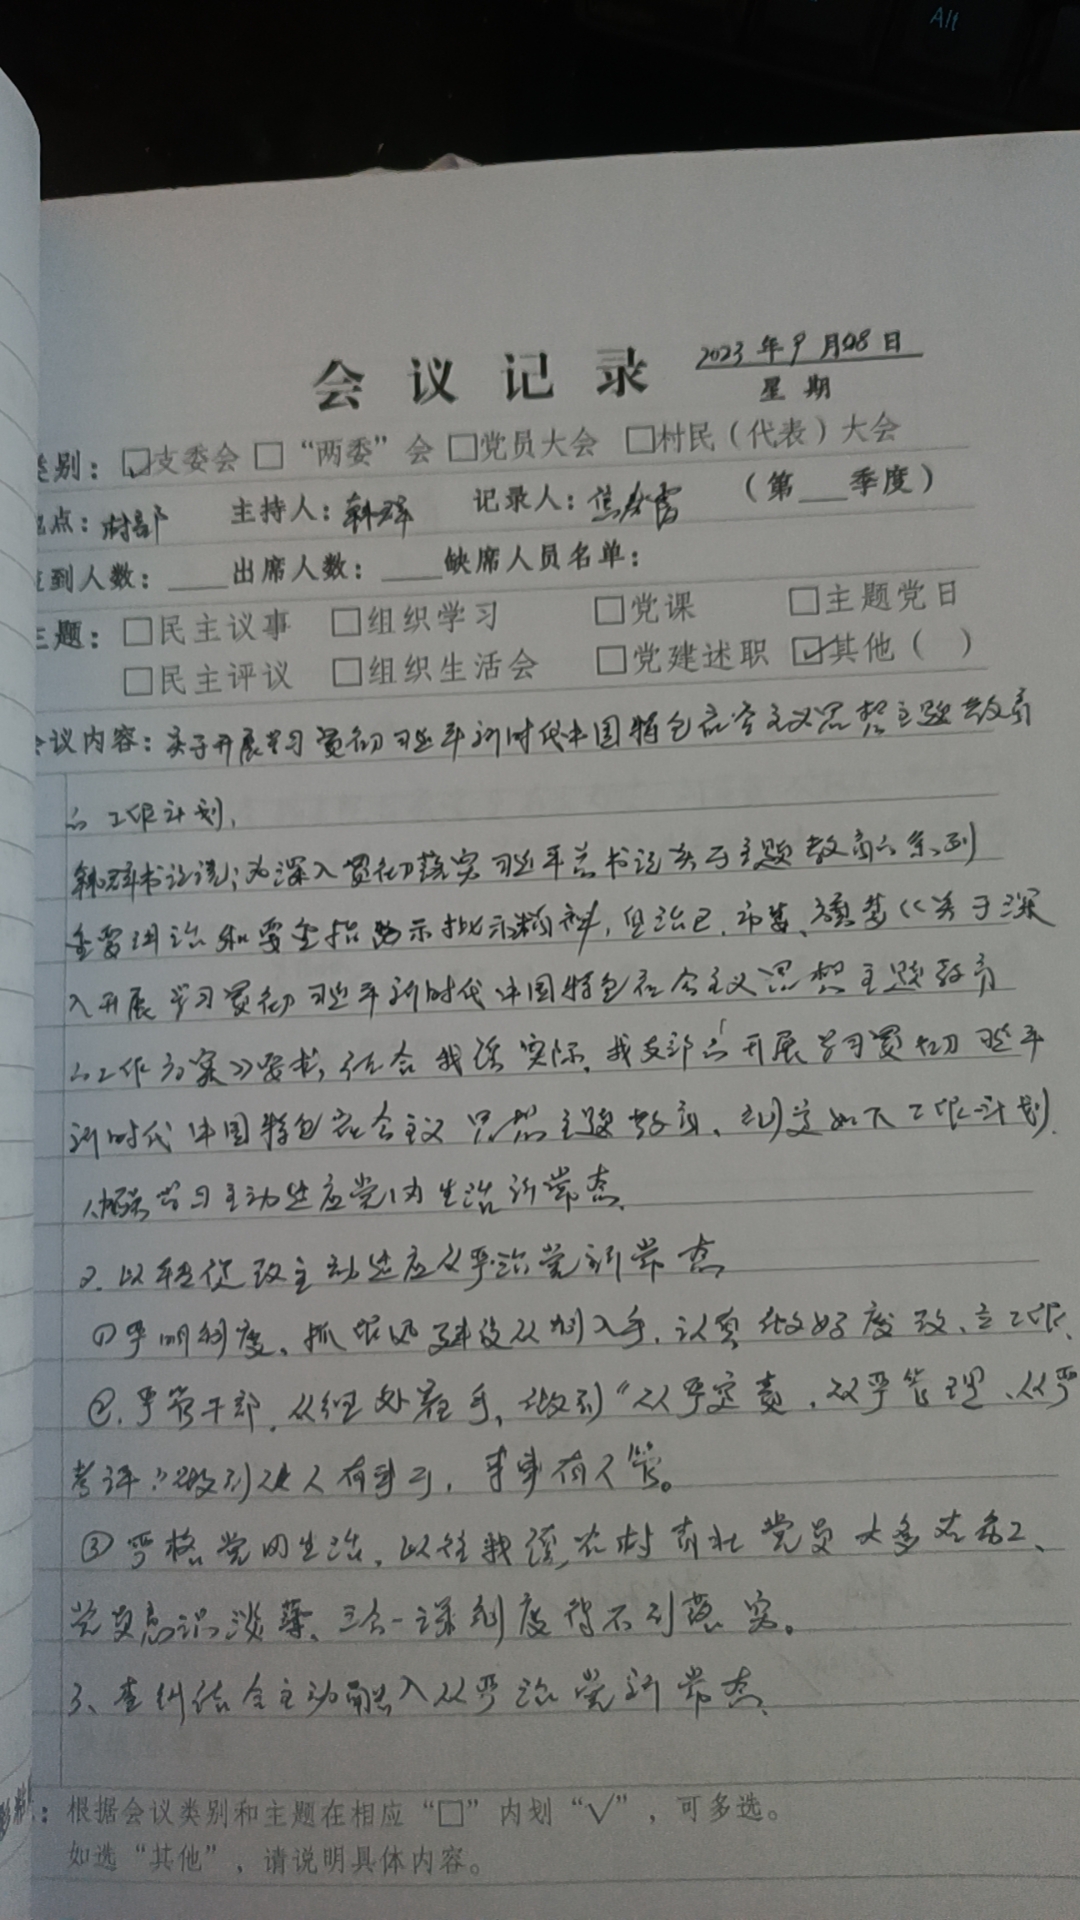 Alt
会议记录 2023年9月08日
星期
类别：☑支委会 □“两委”会 □党员大会 □村民（代表）大会
地点：村部 主持人：韩 记录人：焦 （第 季度）
签到人数： 出席人数： 缺席人员名单：
主题：□民主议事 □组织学习 □党课 □主题党日
□民主评议 □组织生活会 □党建述职 ☑其他（ ）
会议内容：关于开展学习贯彻习近平新时代中国特色社会主义思想主题教育
的工作计划，
韩书记说：为深入贯彻落实习近平总书记关于主题教育的系列
重要讲话和重要指示批示精神，自治区、市委、镇委《关于深
入开展学习贯彻习近平新时代中国特色社会主义思想主题教育
的工作方案》要求，结合我实际，我支部的开展学习贯彻习近平
新时代中国特色社会主义思想主题教育，制定如下工作计划.
学习主动适应党内生活新常态.
2.以促改主动适应从严治党新常态
①严明制度，抓作风建设从制入手，认真做好废、改、立工作.
②.严管干部，从细处着手，做到“从严定责，从严管理、从严
考评”做到人人有事干，事事有人管。
③严格党内生活，以往我农村青壮党员大多在务工、
党员意识淡薄，三会一课制度得不到落实。
3、查纠结合主动融入从严治党新常态.
：根据会议类别和主题在相应“□”内划“√”，可多选。
如选“其他”，请说明具体内容。